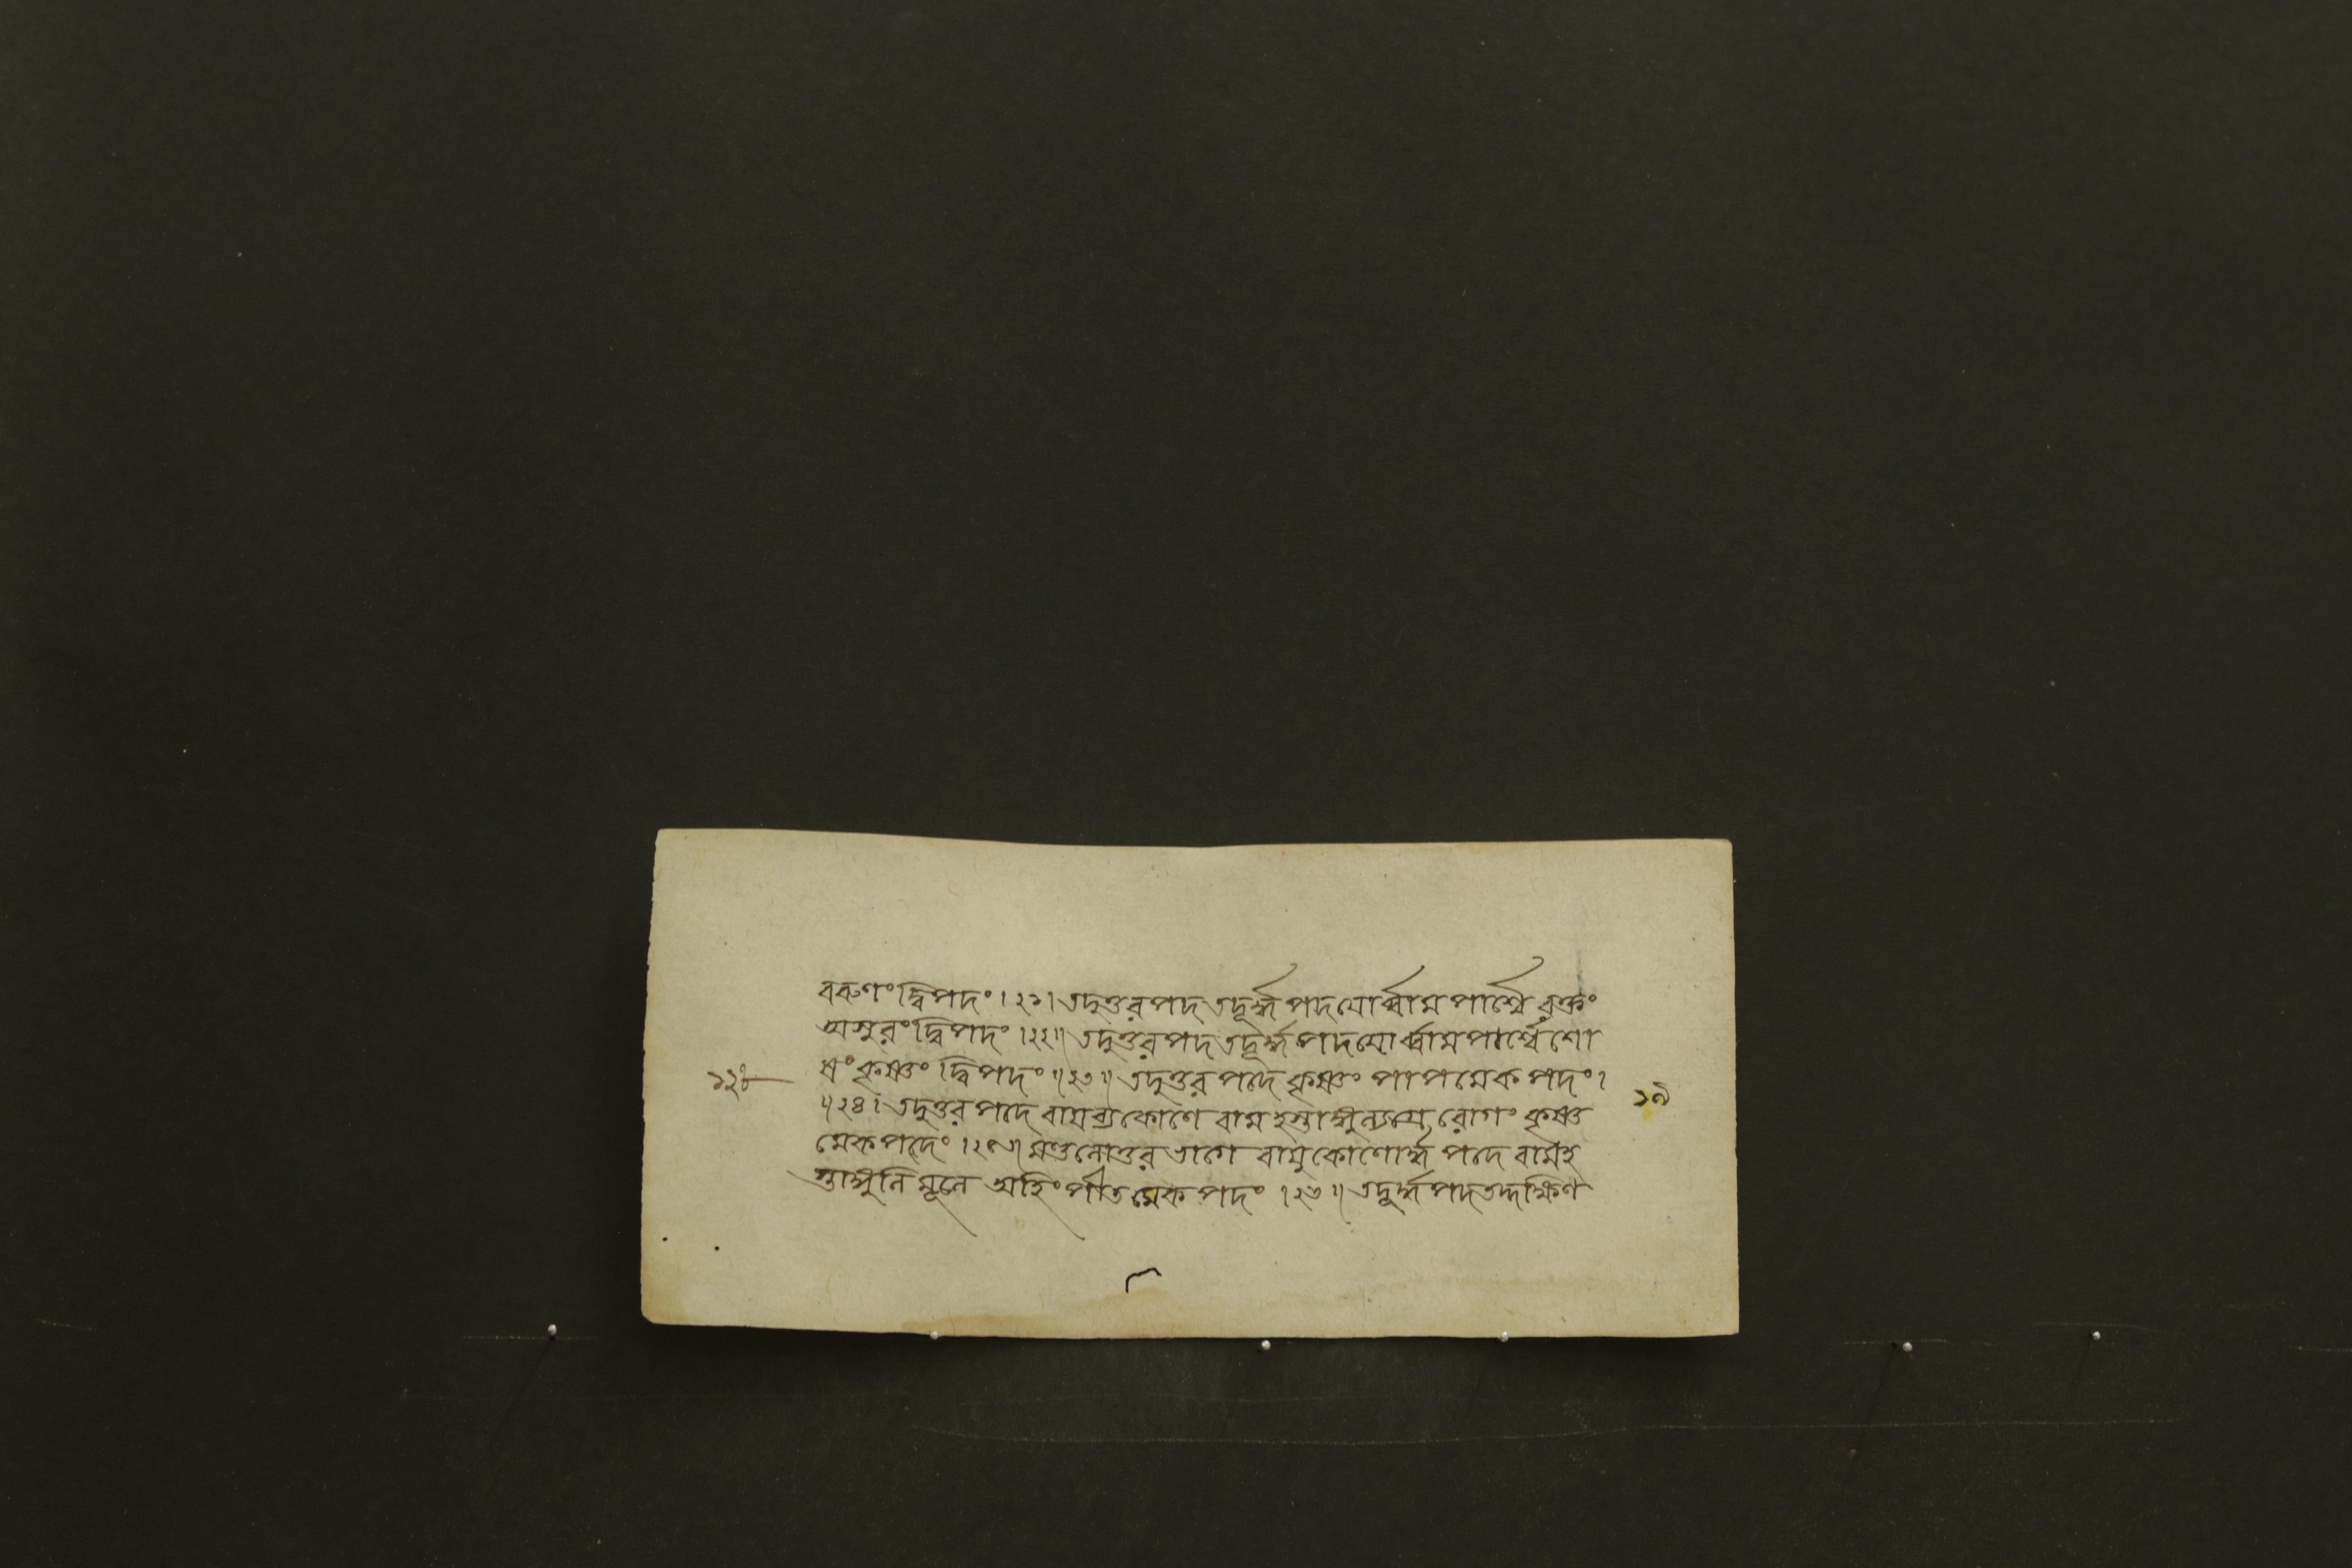 বরুণং দ্বিপদং ।২১। তদুত্তরপদ তদূর্দ্ধ্বপদযোর্ব্বামপার্শ্বে রক্তং
অসুরং দ্বিপদং ।২২॥ তদুত্তরপদতদূর্দ্ধ্বপদযোর্ব্বামপার্শ্বে শো
ষং কৃষ্ণং দ্বিপদং ॥২৩॥ তদুত্তর পদে কৃষ্ণং পাপমেকপদং ।
॥২৪। তদুত্তর পদে বায়ব্যকোণে বামহস্তাঙ্গুল্যগ্রে রোগং কৃষ্ণ
মেকপদং ।২৫॥ মণ্ডলোত্তর ভাগে বায়ুকোণোর্দ্ধ্ব পদে বামহ
স্তাঙ্গুলি মূলে অহিং পীতমেকপদং ।২৬॥ তদূর্দ্ধ্বপদতদ্দক্ষিণ
১৯